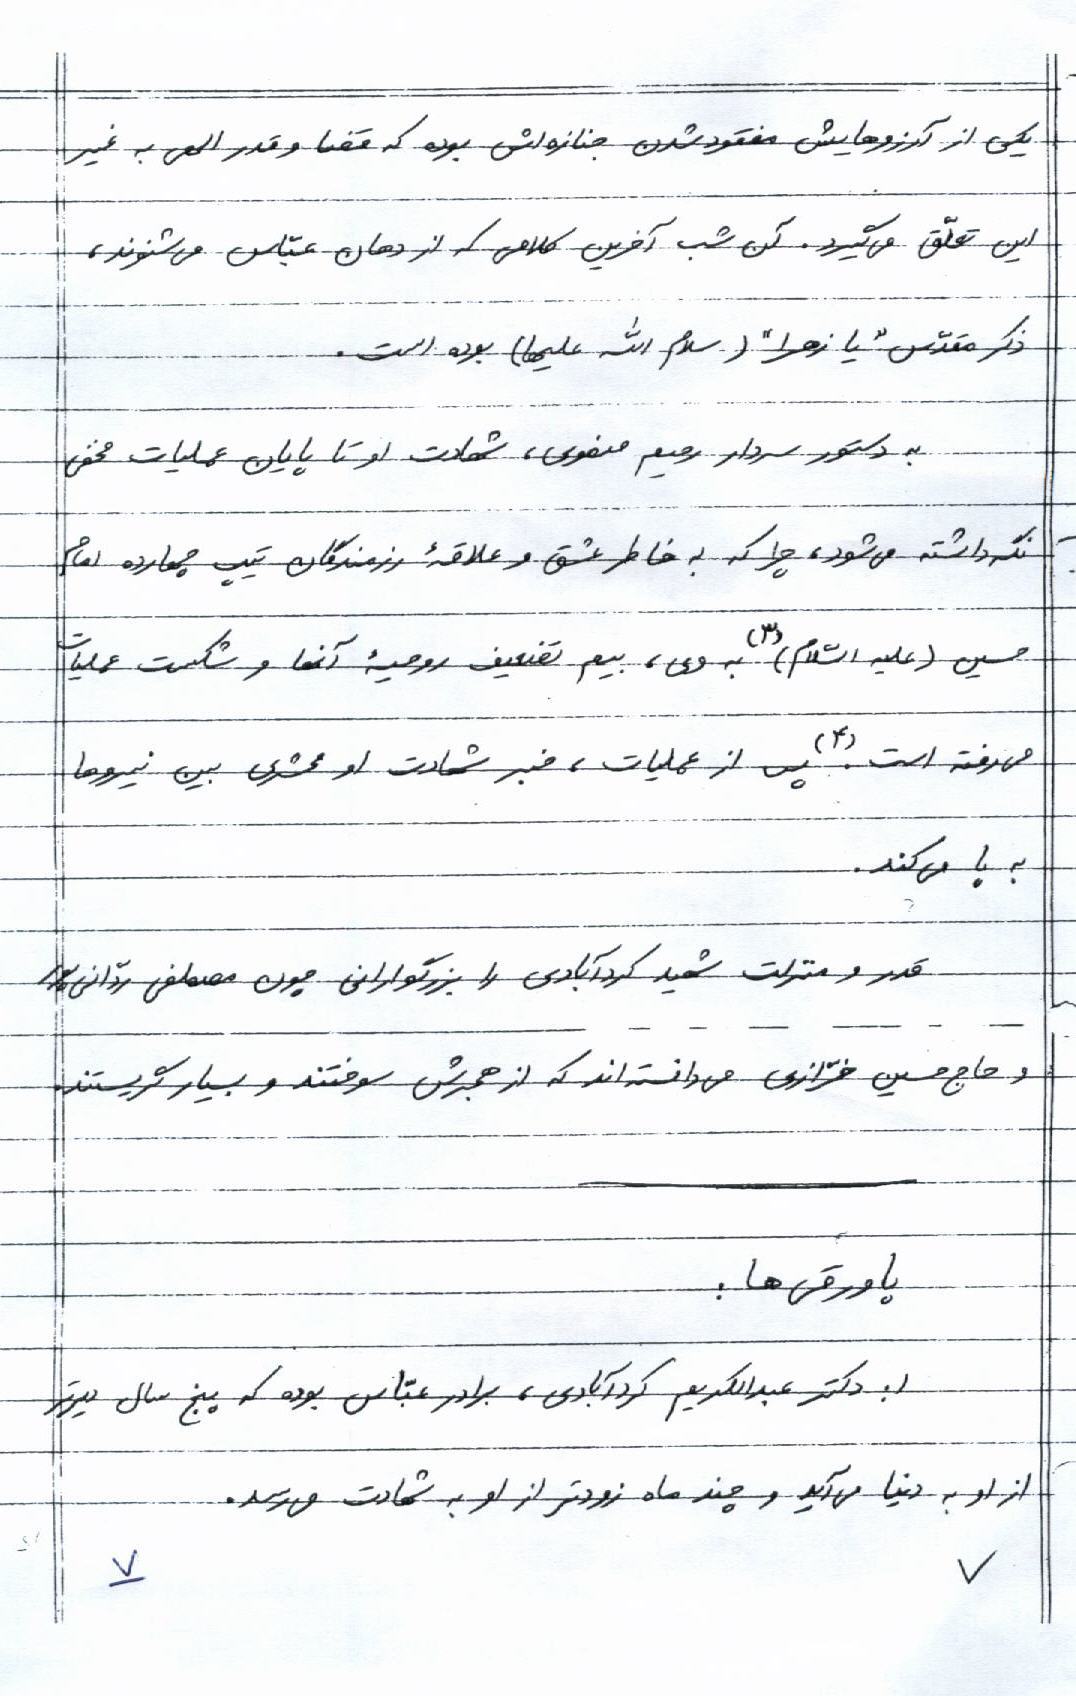 یکی از آرزوهایش مفقود شدن جنازه‌اش بوده که قضا و قدر الهی به غیر
این تعلّق می‌گیرد. آن شب آخرین کلامی که از دهان عبّاس می‌شنوند،
ذکر مقدّس "یا زهرا" (سلام الله علیها) بوده است.
به دستور سردار رحیم صفوی، شهادت او تا پایان عملیات مخفی
نگه داشته می‌شود، چرا که به خاطر عشق و علاقهٔ رزمندگان تیپ چهارده امام
حسین (علیه السّلام)(۳) به وی، بیم تضعیف روحیهٔ آنها و شکست عملیات
می‌رفته است.(۴) پس از عملیات، خبر شهادت او محشری بین نیروها
به پا می‌کند.
قدر و منزلت شهید کردآبادی را بزرگوارانی چون مصطفی ردّانی‌پور
و حاج حسین خرّازی می‌دانسته‌اند که از هجرش سوختند و بسیار گریستند.
پاورقی ها:
۱: دکتر عبدالکریم کردآبادی، برادر عبّاس بوده که پنج سال دیرتر
از او به دنیا می‌آید و چند ماه زودتر از او به شهادت می‌رسد.
۷
۷